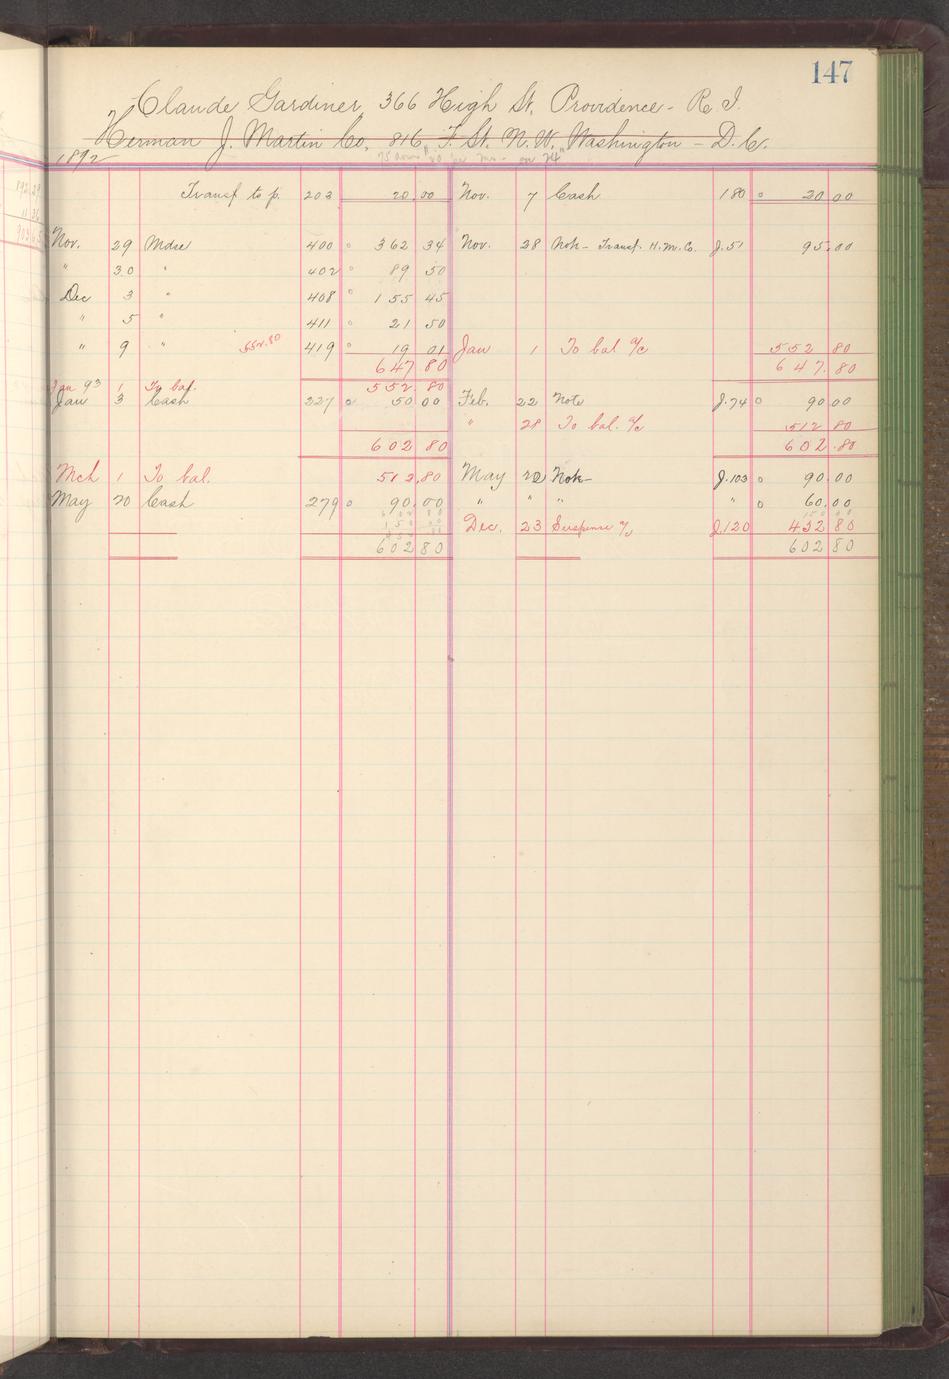 147
Claude Gardiner 366 High St, Providence - R. I.
Herman J. Martin Co. 816 F. St. N. W. Washington - D. C.
1892
Transf to p. 203 20.00 Nov. 7 Cash 180 20 00
Nov. 29 Mdse 400 362 34 Nov. 28 Note - Transf. H. M. Co. J.51 95.00
" 30 " 402 89 50
Dec 3 " 408 155 45
" 5 " 411 21 50
" 9 " 552.80 419 19 01 Jan 1 To bal a/c 552 80
647 80 647.80
Jan 93 1 To bal. 552.80
Jan 3 Cash 227 50.00 Feb. 22 Note J.74 90 00
" 28 To bal. a/c 512 80
602 80 602.80
Mch 1 To bal. 512.80 May 20 Note J.103 90.00
May 20 Cash 279 90.00 " " " " 60.00
Dec. 23 Suspense a/c J.120 452 80
602 80 602 80